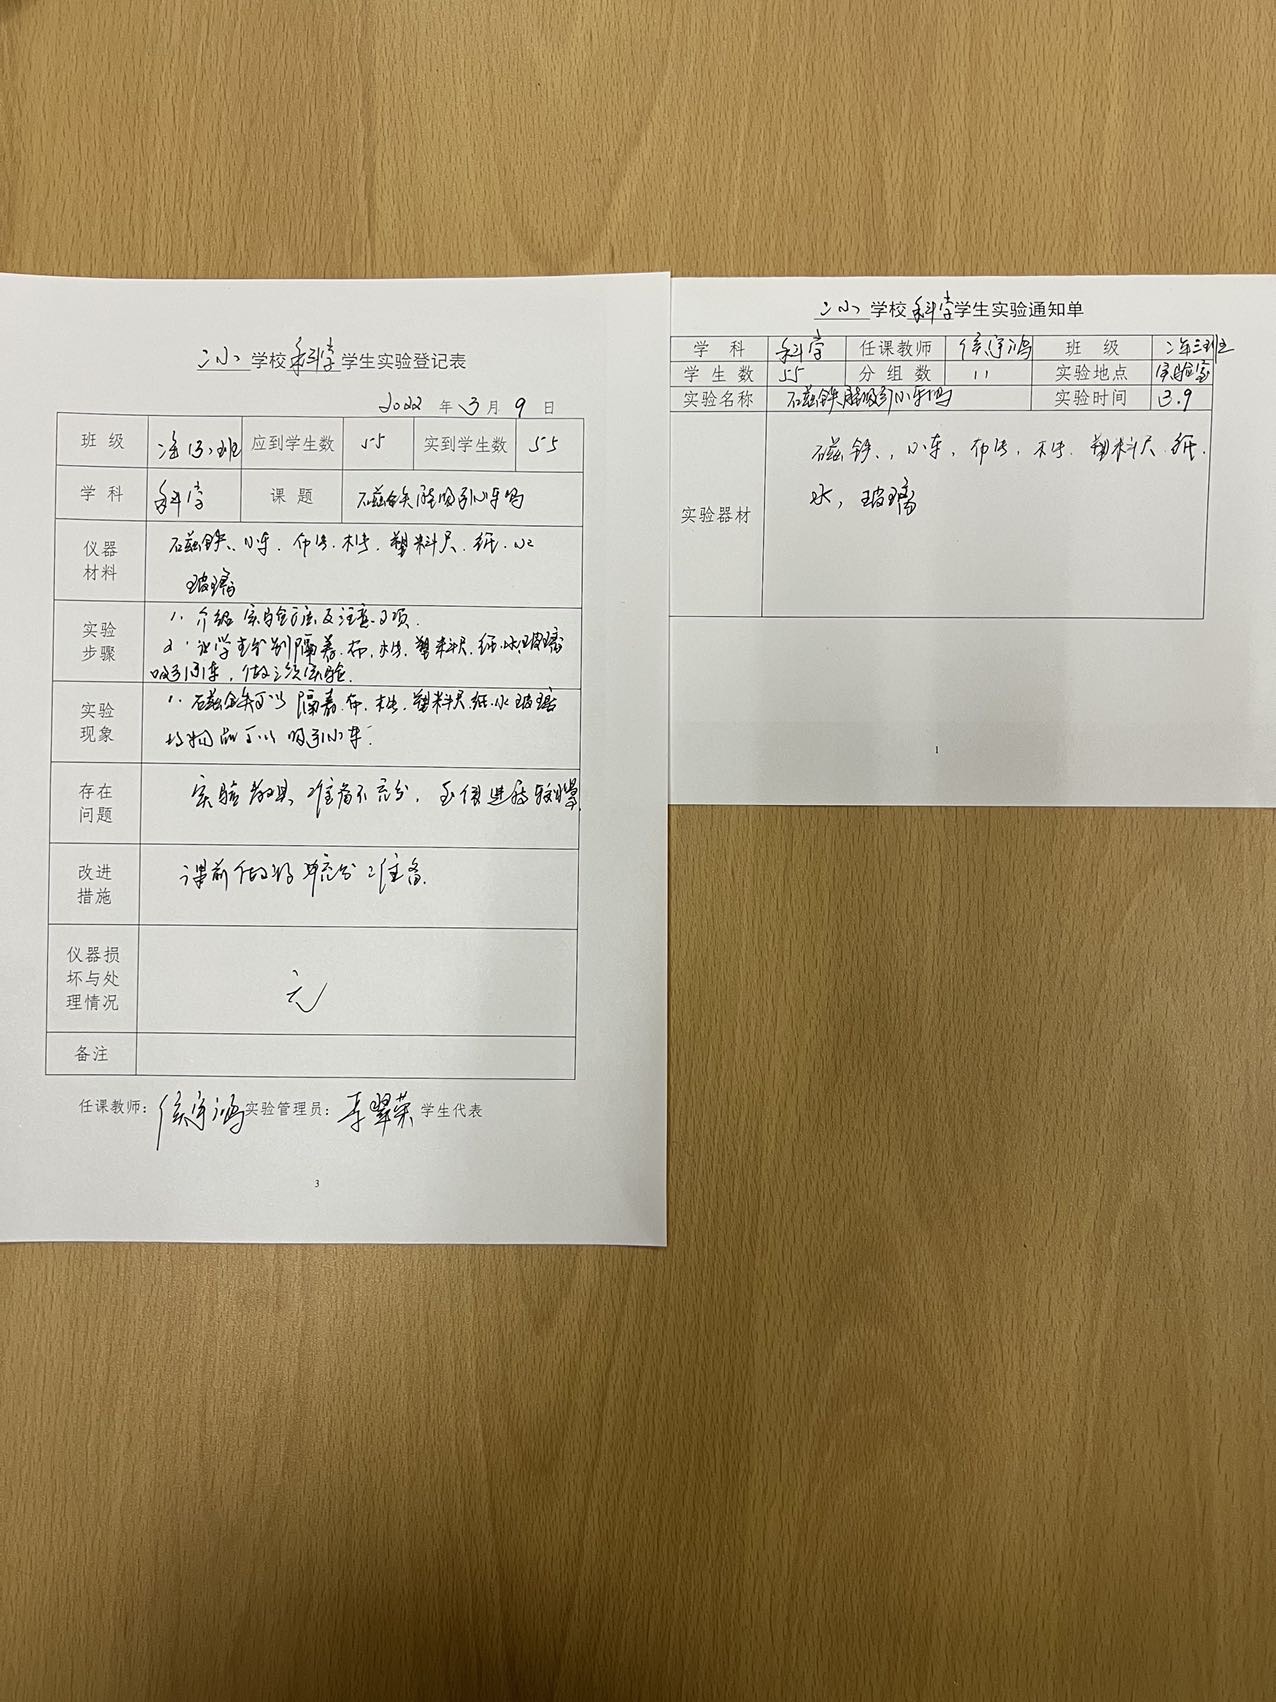 二小学校科学学生实验登记表
2022年3月9日
班级 应到学生数 55 实到学生数 55
学科 科学 课题 石磁铁能吸引小车吗
仪器材料 石磁铁、小车、布片、木片、塑料尺、纸、水
玻璃
实验步骤 1. 介绍实验方法及注意事项.
2. 让学生分别隔着、布、木片、塑料尺、纸、水、玻璃
吸引小车，做实验.
实验现象 1. 石磁铁可以隔着、布、木片、塑料尺、纸、水玻璃
物品可以吸引小车.
存在问题 实验教具准备不充分，进行较慢
改进措施 课前做好充分准备.
仪器损坏与处理情况 无
备注
任课教师：侯宇鸿 实验管理员：李翠荣 学生代表
3
二小学校科学学生实验通知单
学科 科学 任课教师 侯宇鸿 班级 二年三班
学生数 55 分组数 11 实验地点 实验室
实验名称 石磁铁能吸引小车吗 实验时间 3.9
实验器材 石磁铁、小车、布片、木片、塑料尺、纸、
水，玻璃
1